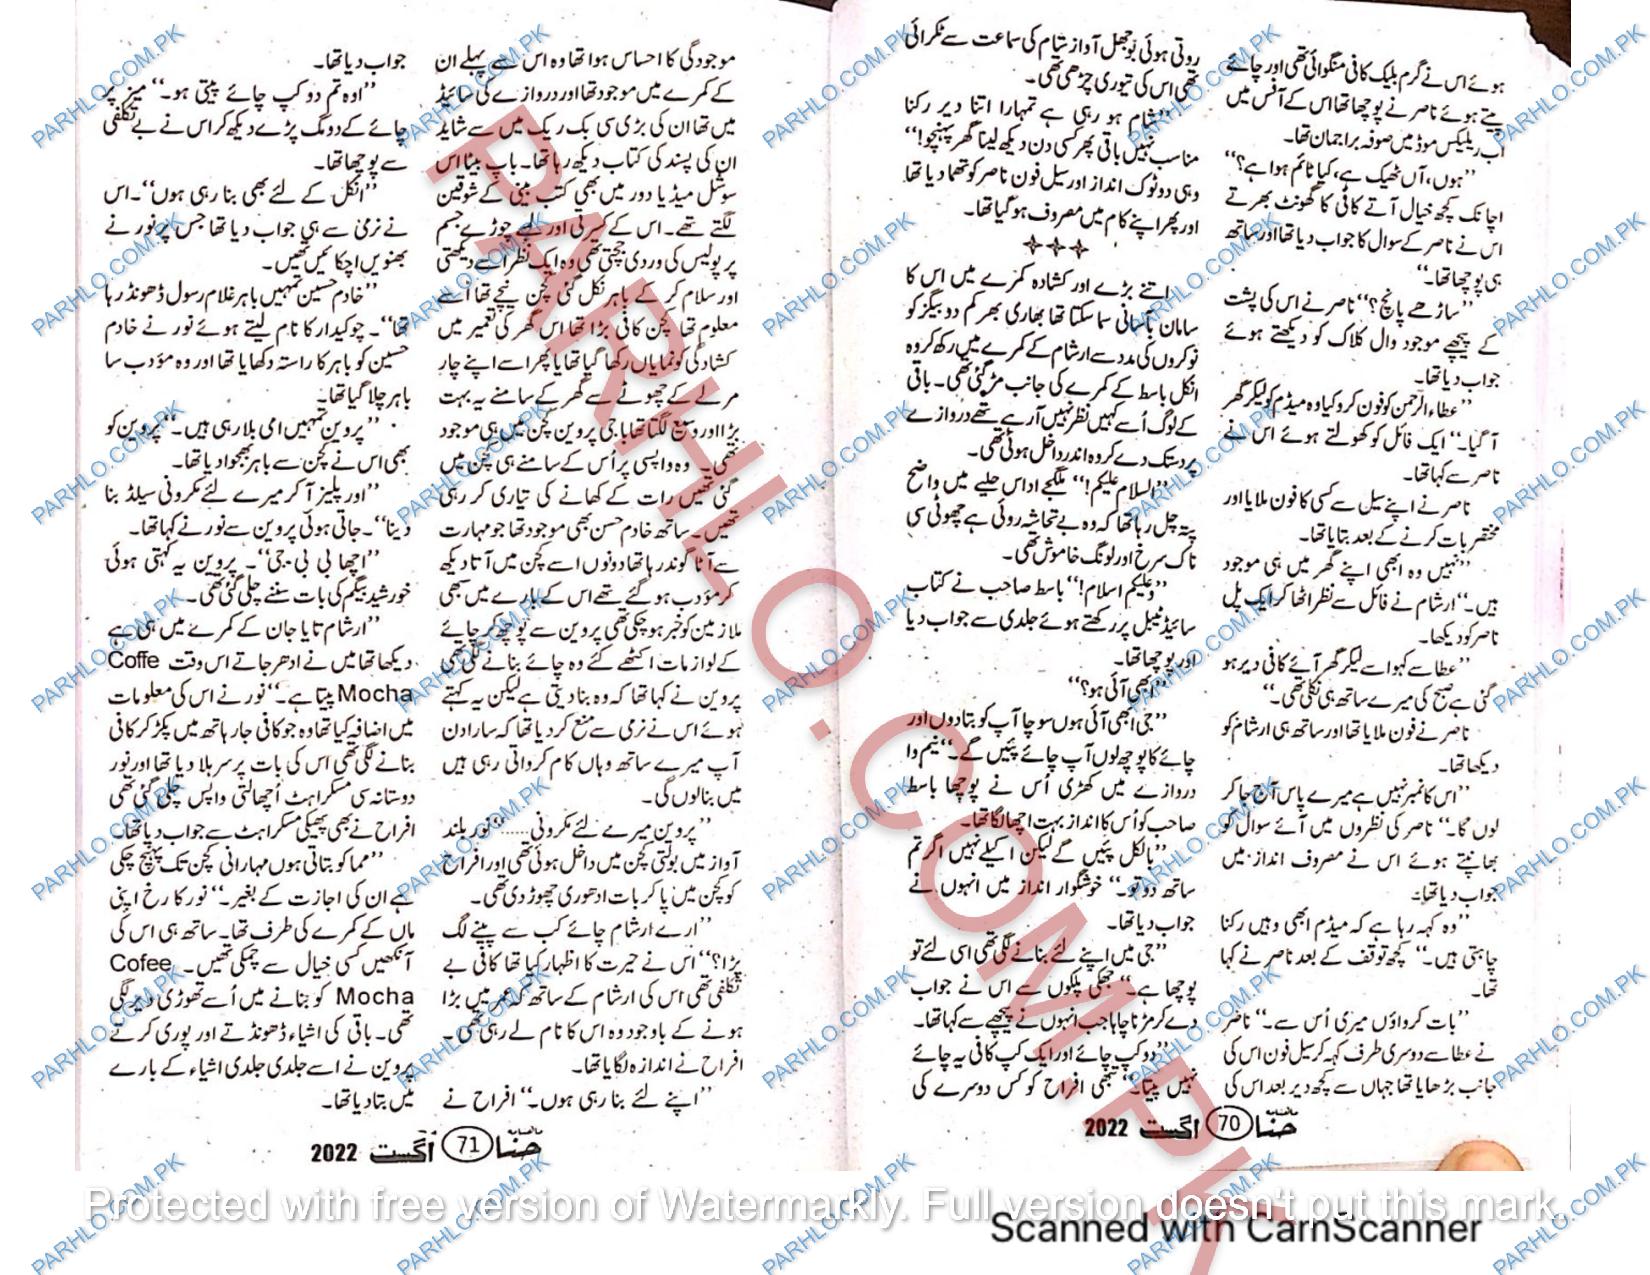 ہوئے اس نے گرم بلیک کافی منگوائی تھی اور چائے
پیتے ہوئے ناصر نے پوچھا تھا اس کے آفس میں
اب ریلیکس موڈ میں صوفہ پر براجمان تھا۔
’’ہوں، آں ٹھیک ہے، کیا ٹائم ہوا ہے؟‘‘
اچانک کچھ خیال آتے کافی کا گھونٹ بھرتے
اس نے ناصر کے سوال کا جواب دیا تھا اور ساتھ
ہی پوچھا تھا۔‘‘
’’ساڑھے پانچ؟‘‘ ناصر نے اس کی پشت
کے پیچھے موجود وال کلاک کو دیکھتے ہوئے
جواب دیا تھا۔
’’عطاء الرحمن کو فون کرو کیا وہ میڈم کو لیکر گھر
آ گیا۔‘‘ ایک فائل کو کھولتے ہوئے اس نے
ناصر سے کہا تھا۔
ناصر نے اپنے سیل سے کسی کا فون ملایا اور
مختصر بات کرنے کے بعد بتایا تھا۔
’’نہیں وہ ابھی اپنے گھر میں ہی موجود
ہیں۔‘‘ ارشام نے فائل سے نظر اٹھا کر ایک پل
ناصر کو دیکھا۔
’’عطا سے کہو اسے لیکر گھر آئے کافی دیر ہو
گئی ہے صبح کی میرے ساتھ ہی نکلی تھی۔‘‘
ناصر نے فون ملایا تھا اور ساتھ ہی ارشام کو
دیکھا تھا۔
’’اس کا نمبر نہیں ہے میرے پاس آج جا کر
لوں گا۔‘‘ ناصر کی نظروں میں آئے سوال کو
بھانپتے ہوئے اس نے مصروف انداز میں
جواب دیا تھا۔
’’وہ کہہ رہا ہے کہ میڈم ابھی وہیں رکنا
چاہتی ہیں۔‘‘ کچھ توقف کے بعد ناصر نے کہا
تھا۔
’’بات کرواؤں میری اُس سے۔‘‘ ناصر
نے عطا سے دوسری طرف کہہ کر سیل فون اس کی
جانب بڑھایا تھا جہاں سے کچھ دیر بعد اس کی
روتی ہوئی بوجھل آواز شام کی سماعت سے ٹکرائی
تھی اس کی تیوری چڑھی تھی۔
’’شام ہو رہی ہے تمہارا اتنا دیر رکنا
مناسب نہیں باقی پھر کسی دن دیکھ لینا گھر پہنچو!‘‘
وہی دوٹوک انداز اور سیل فون ناصر کو تھما دیا تھا
اور پھر اپنے کام میں مصروف ہو گیا تھا۔
✧✧✧
اتنے بڑے اور کشادہ کمرے میں اس کا
سامان بآسانی سما سکتا تھا بھاری بھر کم دو بیگز کو
نوکروں کی مدد سے ارشام کے کمرے میں رکھ کر وہ
انکل باسط کے کمرے کی جانب مڑ گئی تھی۔ باقی
کے لوگ اُسے کہیں نظر نہیں آ رہے تھے دروازے
پر دستک دے کر وہ اندر داخل ہوئی تھی۔
’’السلام علیکم!‘‘ ملگجے اداس حلیے میں واضح
پتہ چل رہا تھا کہ وہ بے تحاشہ روئی ہے چھوٹی سی
ناک سرخ اور لونگ خاموش تھی۔
’’وعلیکم اسلام!‘‘ باسط صاحب نے کتاب
سائیڈ ٹیبل پر رکھتے ہوئے جلدی سے جواب دیا
اور پوچھا تھا۔
’’ابھی آئی ہو؟‘‘
’’جی ابھی آئی ہوں سوچا آپ کو بتا دوں اور
چائے کا پوچھ لوں آپ چائے پئیں گے۔‘‘ نیم وا
دروازے میں کھڑی اُس نے پوچھا باسط
صاحب کو اُس کا انداز بہت اچھا لگا تھا۔
’’بالکل پئیں گے لیکن اکیلے نہیں اگر تم
ساتھ دو تو۔‘‘ خوشگوار انداز میں انہوں نے
جواب دیا تھا۔
’’جی میں اپنے لئے بنانے لگی تھی اسی لئے تو
پوچھا ہے۔‘‘ جھکی پلکوں سے اس نے جواب
دے کر مڑنا چاہا جب انہوں نے پیچھے سے کہا تھا۔
’’دو کپ چائے اور ایک کپ کافی یہ چائے
نہیں پیتا۔‘‘ تبھی افراح کو کس دوسرے کی
ماہنامہ حنا 70 اگست 2022
موجودگی کا احساس ہوا تھا وہ اس سے پہلے ان
کے کمرے میں موجود تھا اور دروازے کی سائیڈ
میں تھا ان کی بڑی سی بک ریک میں سے شاید
ان کی پسند کی کتاب دیکھ رہا تھا۔ باپ بیٹا اس
سوشل میڈیا دور میں بھی کتب بینی کے شوقین
لگتے تھے۔ اس کے کسرتی اور لمبے چوڑے جسم
پر پولیس کی وردی جچتی تھی وہ ایک نظر اسے دیکھتی
اور سلام کر کے باہر نکل گئی کچن نیچے تھا اُسے
معلوم تھا کچن کافی بڑا تھا اس گھر کی تعمیر میں
کشادگی کو نمایاں رکھا گیا تھا یا پھر اسے اپنے چار
مرلے کے چھوٹے سے گھر کے سامنے یہ بہت
بڑا اور وسیع لگتا تھا باجی پروین کچن میں ہی موجود
تھی۔ وہ واپسی پر اُس کے سامنے ہی کچن میں
گئی تھیں رات کے کھانے کی تیاری کر رہی
تھیں۔ ساتھ خادم حسن بھی موجود تھا جو مہارت
سے آٹا گوندھ رہا تھا دونوں اسے کچن میں آتا دیکھ
کر مؤدب ہو گئے تھے اس کے بارے میں سبھی
ملازمین کو خبر ہو چکی تھی پروین سے پوچھ کر چائے
کے لوازمات اکٹھے کئے وہ چائے بنانے لگی تھی
پروین نے کہا تھا کہ وہ بنا دیتی ہے لیکن یہ کہتے
ہوئے اس نے نرمی سے منع کر دیا تھا کہ سارا دن
آپ میرے ساتھ وہاں کام کرواتی رہی ہیں
میں بنا لوں گی۔
’’پروین میرے لئے مکرونی......‘‘ نور بلند
آواز میں بولتی کچن میں داخل ہوئی تھی اور افراح
کو کچن میں پا کر بات ادھوری چھوڑ دی تھی۔
’’ارے ارشام چائے کب سے پینے لگ
پڑا؟‘‘ اس نے حیرت کا اظہار کیا تھا کافی بے
تکلفی تھی اس کی ارشام کے ساتھ عمر میں بڑا
ہونے کے باوجود وہ اس کا نام لے رہی تھی۔
افراح نے اندازہ لگایا تھا۔
’’اپنے لئے بنا رہی ہوں۔‘‘ افراح نے
جواب دیا تھا۔
’’اوہ تم دو کپ چائے پیتی ہو۔‘‘ میز پر
چائے کے دو مگ پڑے دیکھ کر اس نے بے تکلفی
سے پوچھا تھا۔
’’انکل کے لئے بھی بنا رہی ہوں‘‘۔ اس
نے نرمی سے ہی جواب دیا تھا جس پر نور نے
بھنویں اچکائیں تھیں۔
’’خادم حسین تمہیں باہر غلام رسول ڈھونڈ رہا
تھا‘‘۔ چوکیدار کا نام لیتے ہوئے نور نے خادم
حسین کو باہر کا راستہ دکھایا تھا اور وہ مؤدب سا
باہر چلا گیا تھا۔
’’پروین تمہیں امی بلا رہی ہیں۔‘‘ پروین کو
بھی اس نے کچن سے باہر بھجوا دیا تھا۔
’’اور پلیز آ کر میرے لئے مکرونی سیلڈ بنا
دینا‘‘۔ جاتی ہوئی پروین سے نور نے کہا تھا۔
’’اچھا بی بی جی‘‘۔ پروین یہ کہتی ہوئی
خورشید بیگم کی بات سننے چلی گئی تھی۔
’’ارشام تایا جان کے کمرے میں ہی ہے
دیکھا تھا میں نے ادھر جاتے اس وقت Coffe
Mocha پیتا ہے۔‘‘ نور نے اس کی معلومات
میں اضافہ کیا تھا وہ جو کافی جار ہاتھ میں پکڑ کر کافی
بنانے لگی تھی اس کی بات پر سر ہلا دیا تھا اور نور
دوستانہ سی مسکراہٹ اُچھالتی واپس چلی گئی تھی
افراح نے بھی پھیکی مسکراہٹ سے جواب دیا تھا۔
’’مما کو بتاتی ہوں مہارانی کچن تک پہنچ چکی
ہے ان کی اجازت کے بغیر۔‘‘ نور کا رخ اپنی
ماں کے کمرے کی طرف تھا۔ ساتھ ہی اس کی
آنکھیں کسی خیال سے چمکی تھیں۔ Cofee
Mocha کو بنانے میں اُسے تھوڑی دیر لگی
تھی۔ باقی کی اشیاء ڈھونڈتے اور پوری کرتے
پروین نے اسے جلدی جلدی اشیاء کے بارے
میں بتا دیا تھا۔
ماہنامہ حنا 71 اگست 2022
PARHLO.COM.PK
Protected with free version of Watermarkly. Full version doesn't put this mark.
Scanned with CamScanner